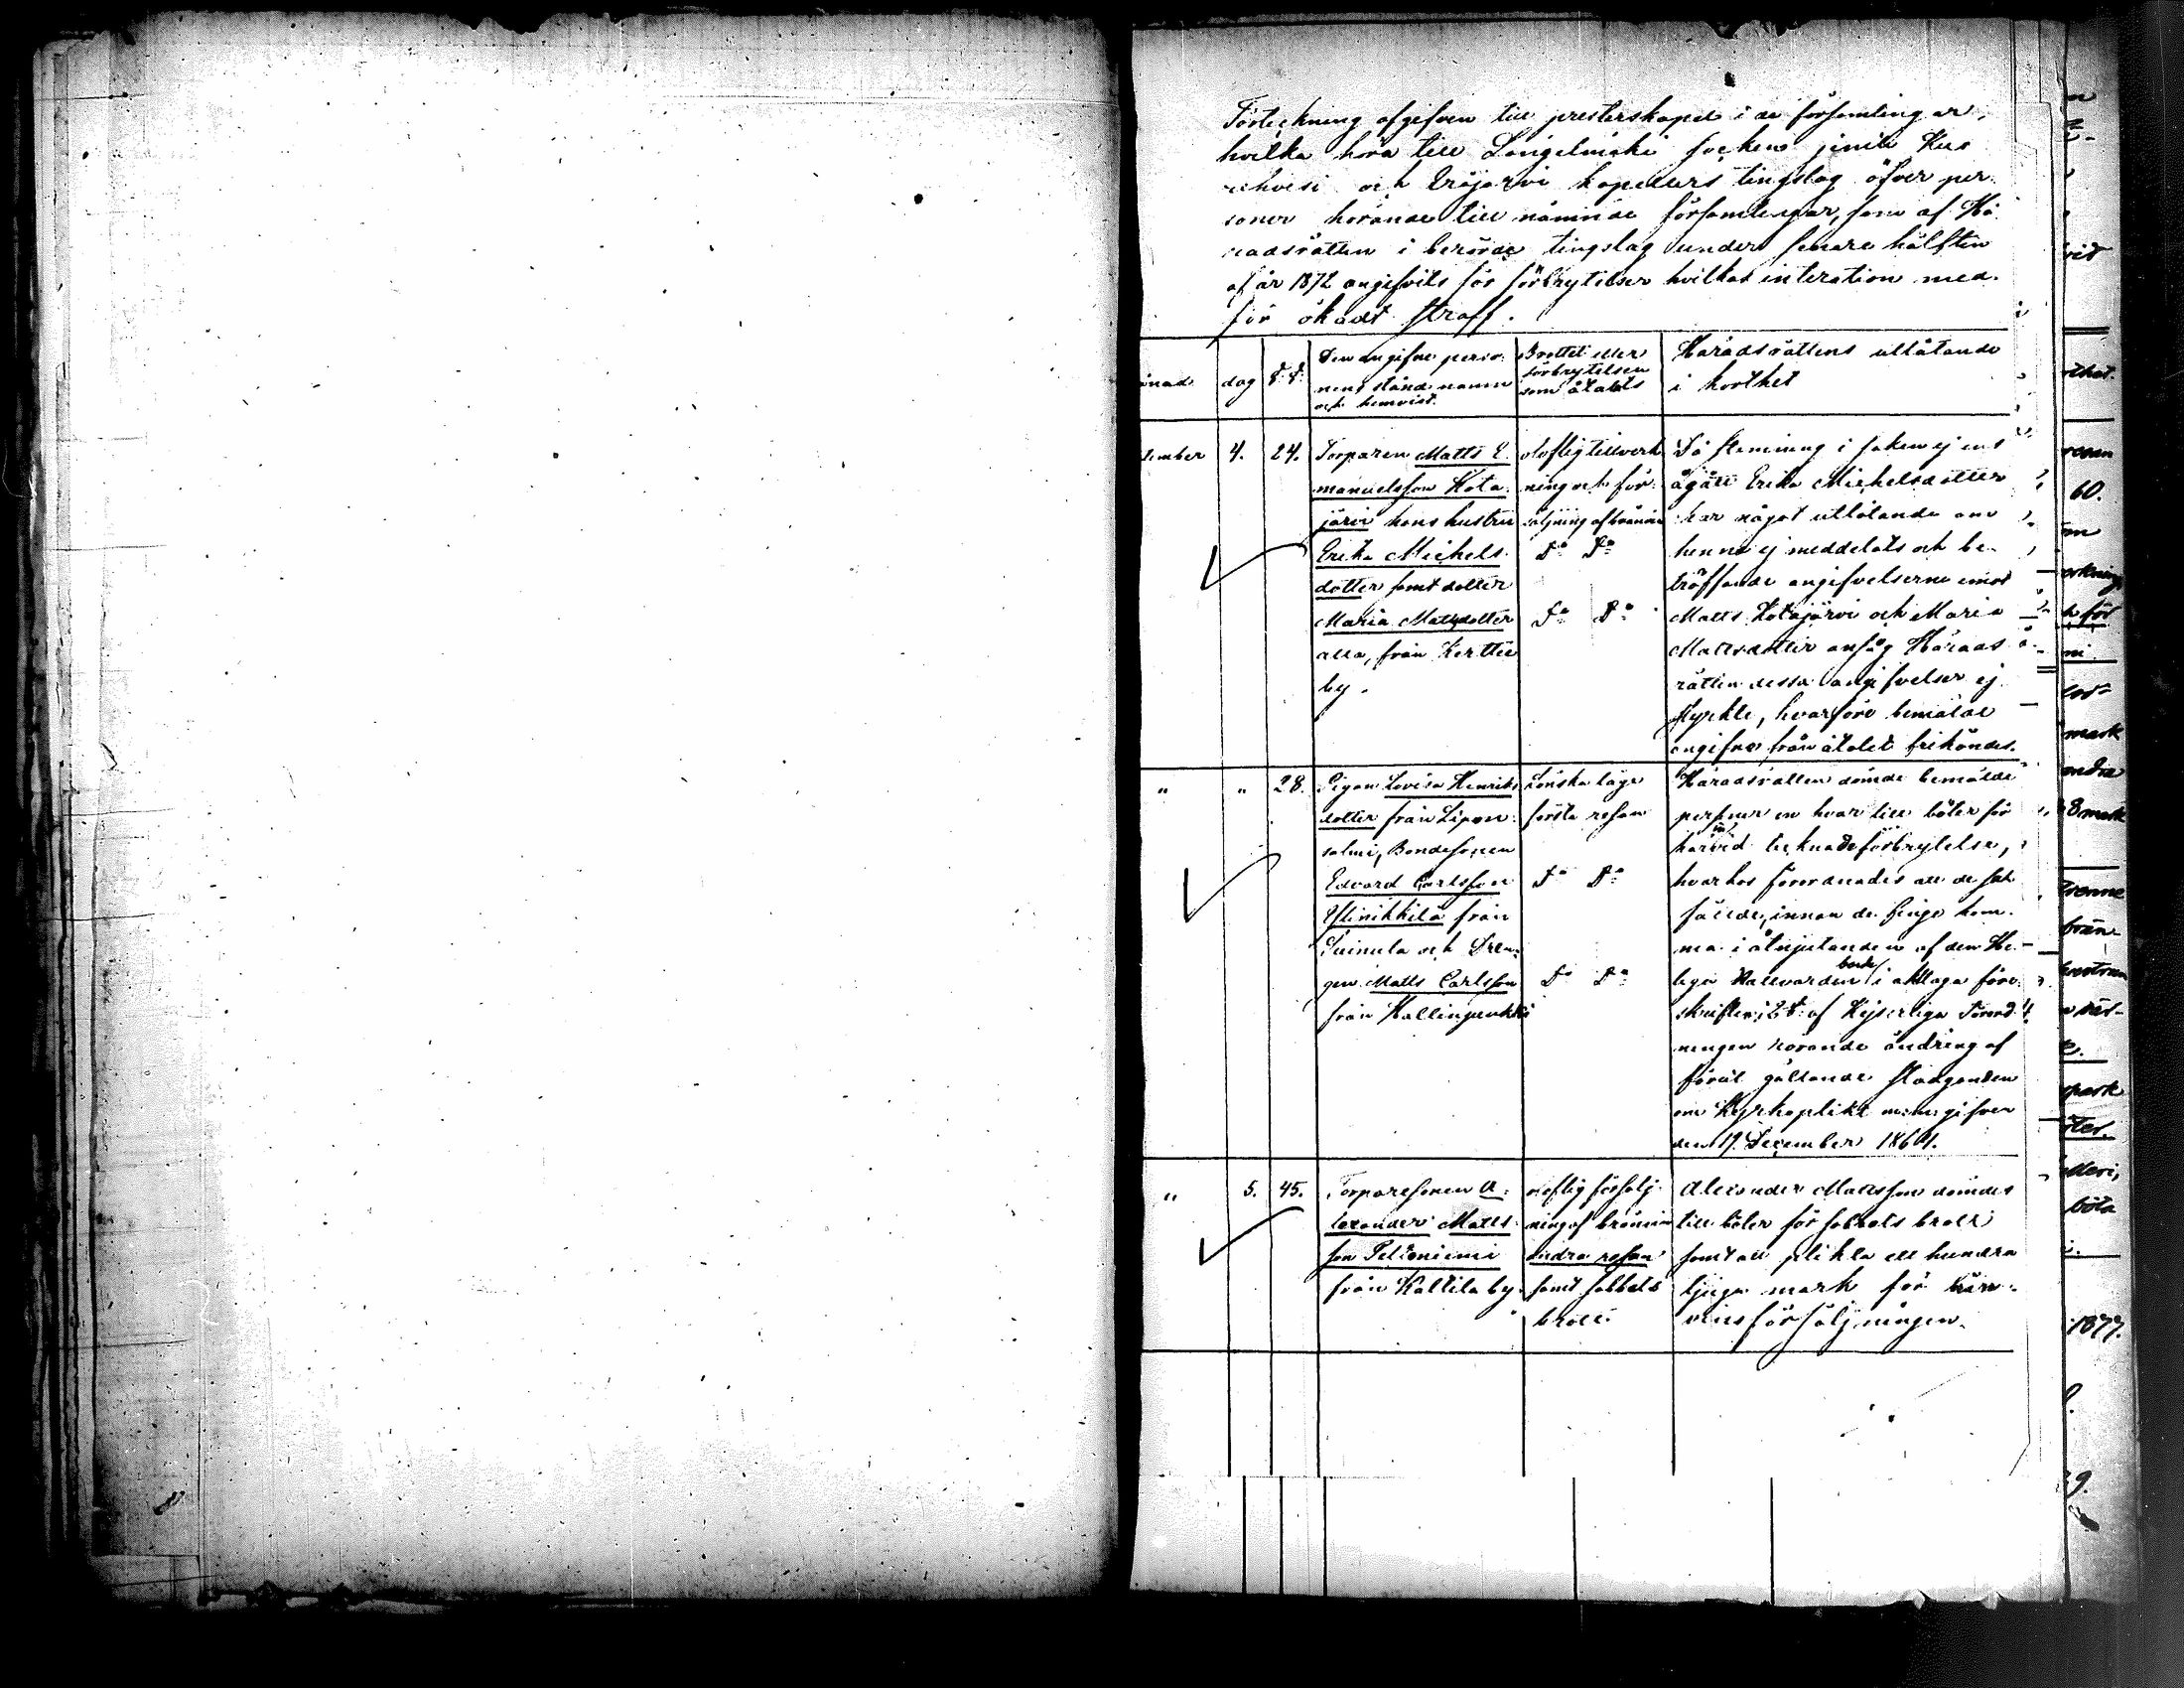 Förteckning afgifven till presterskapet i de församlingar,
hvilka höra till Längelmäki socken jemte Kuo
rehvesi och Eräjärvi kapellers tingslag öfver per
soner hörande till nämnde församlingar, som af Hä
radsrätten i berörde tingslag under senare hälften
af år 1872 angifvits för förbrytelser hvilkas interation med
för ökadt straff.
ånad
dag
§. §.
Den angifne perso
nens stånd, namn
och hemvist.
Brottet eller
förbrytelsen
som åtalats
Häradsrättens utlåtande
i korthet
tember 4. 24.
Torparen Matts E
manuelsson Kota
järvi hans hustru
Erika Michels
dotter samt dotter
Maria Mattsdotter
alla, från Kerttee
by.
olofligtillverk
ning och för
säljning af bränvin
Do Do
Do Do
Då stemning i saken ej ens
ägätt Erika Michelsdotter
har något utlåtande om
henne ej meddelats och be
träffande angifvelserne emot
Matts Kotajärvi och Maria
Mattsdotter ansåg Härads
rätten dessa angifvelser ej
styrkte, hvarföre bemälde
angifne från åtalet frikändes.
" " 28.
Pigan Lovisa Henriks
dotter från Lipon
salmi, Bondesonen
Edvard Carlsson
Ylinikkilä från
Puinula och Dren
gen Matts Carlsson
från Hallinpenkki
Lönska läge
första resan
Do Do
Do Do
Häradsrätten dömde bemälde
personer en hvar till böter för
härvid tecknade förbrytelse,
hvarhos förordnades att de sak
fällde, innan de finge kom
ma i åtnjutande af den He
liga Nattvarden borde iakttaga före
skriften i 2 §. af Kejserliga Förord
ningen rörande ändring af
förut gällande stadganden
om Kyrkoplikt m:m: gifven
den 19 December 1864.
" 5. 45.
Torparesonen A
lexander Matts
son Peltoniemi
från Kaltila by.
oloflig försälj
ning af bränvin
andra resan
samt sabbats
brott
Alexander Mattsson dömdes
till böter för sabbats brott
samt att plikta ett hundra
tjugo mark för brän
vinsförsäljningen.
60.
mark
andra
8 mark
böta
1877.
9.